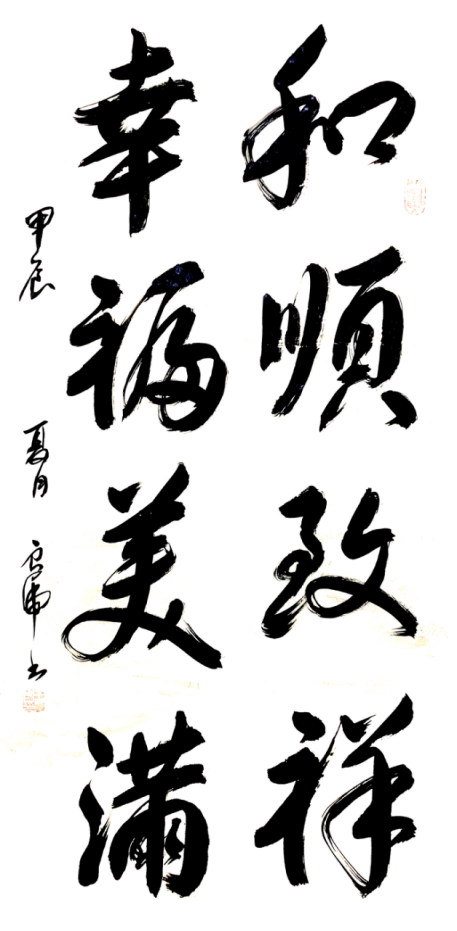 和順致祥
幸福美滿
甲辰 夏月
书